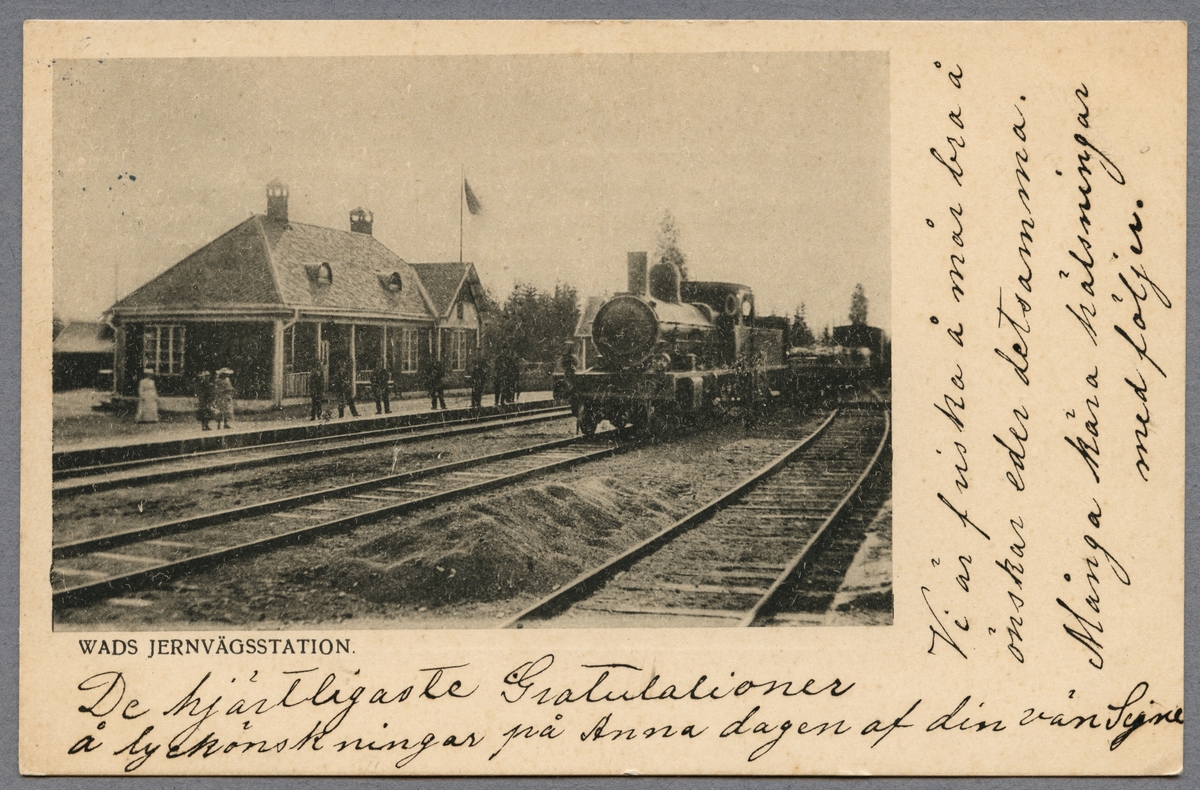 WADS JERNVÄGSSTATION.
De hjärtligaste Gratulationer
å lyckönskningar på Anna dagen af din vän Signe
Vi är friska å mår bra å
önskar eder detsamma.
Många kära hälsningar
med följer.